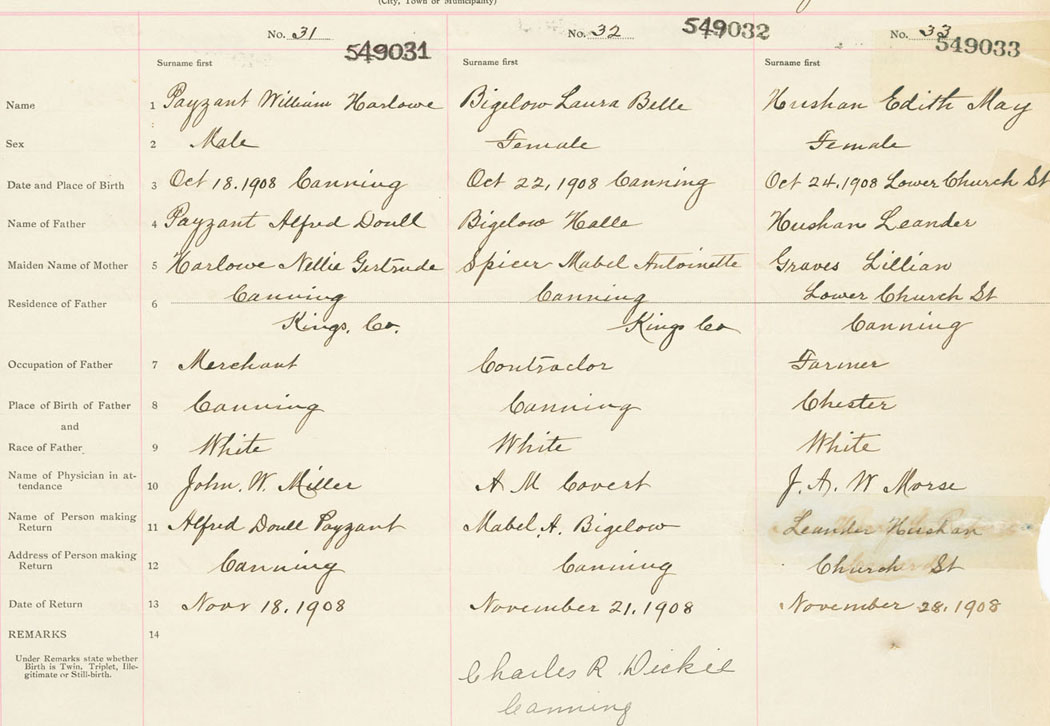 (City, Town or Municipality)
No. 31 No. 32 No. 33
549031 549032 549033
Surname first Surname first Surname first
Name 1 Payzant William Harlowe Bigelow Laura Belle Hushan Edith May
Sex 2 Male Female Female
Date and Place of Birth 3 Oct 18.1908 Canning Oct 22,1908 Canning Oct 24.1908 Lower Church St
Name of Father 4 Payzant Alfred Doull Bigelow Halle Hushan Leander
Maiden Name of Mother 5 Harlowe Nellie Gertrude Spicer Mabel Antoinette Graves Lillian
Residence of Father 6 Canning Canning Lower Church St
Kings, Co. Kings Co Canning
Occupation of Father 7 Merchant Contractor Farmer
Place of Birth of Father 8 Canning Canning Chester
and
Race of Father 9 White White White
Name of Physician in at-
tendance 10 John. W. Miller A M Covert J. A. W Morse
Name of Person making
Return 11 Alfred Doull Payzant Mabel A. Bigelow Leander Hushan
Address of Person making
Return 12 Canning Canning Church St
Date of Return 13 Novr 18.1908 November 21.1908 November 28.1908
REMARKS 14
Under Remarks state whether
Birth is Twin, Triplet, Ille-
gitimate or Still-birth.
Charles R. Dickie
Canning